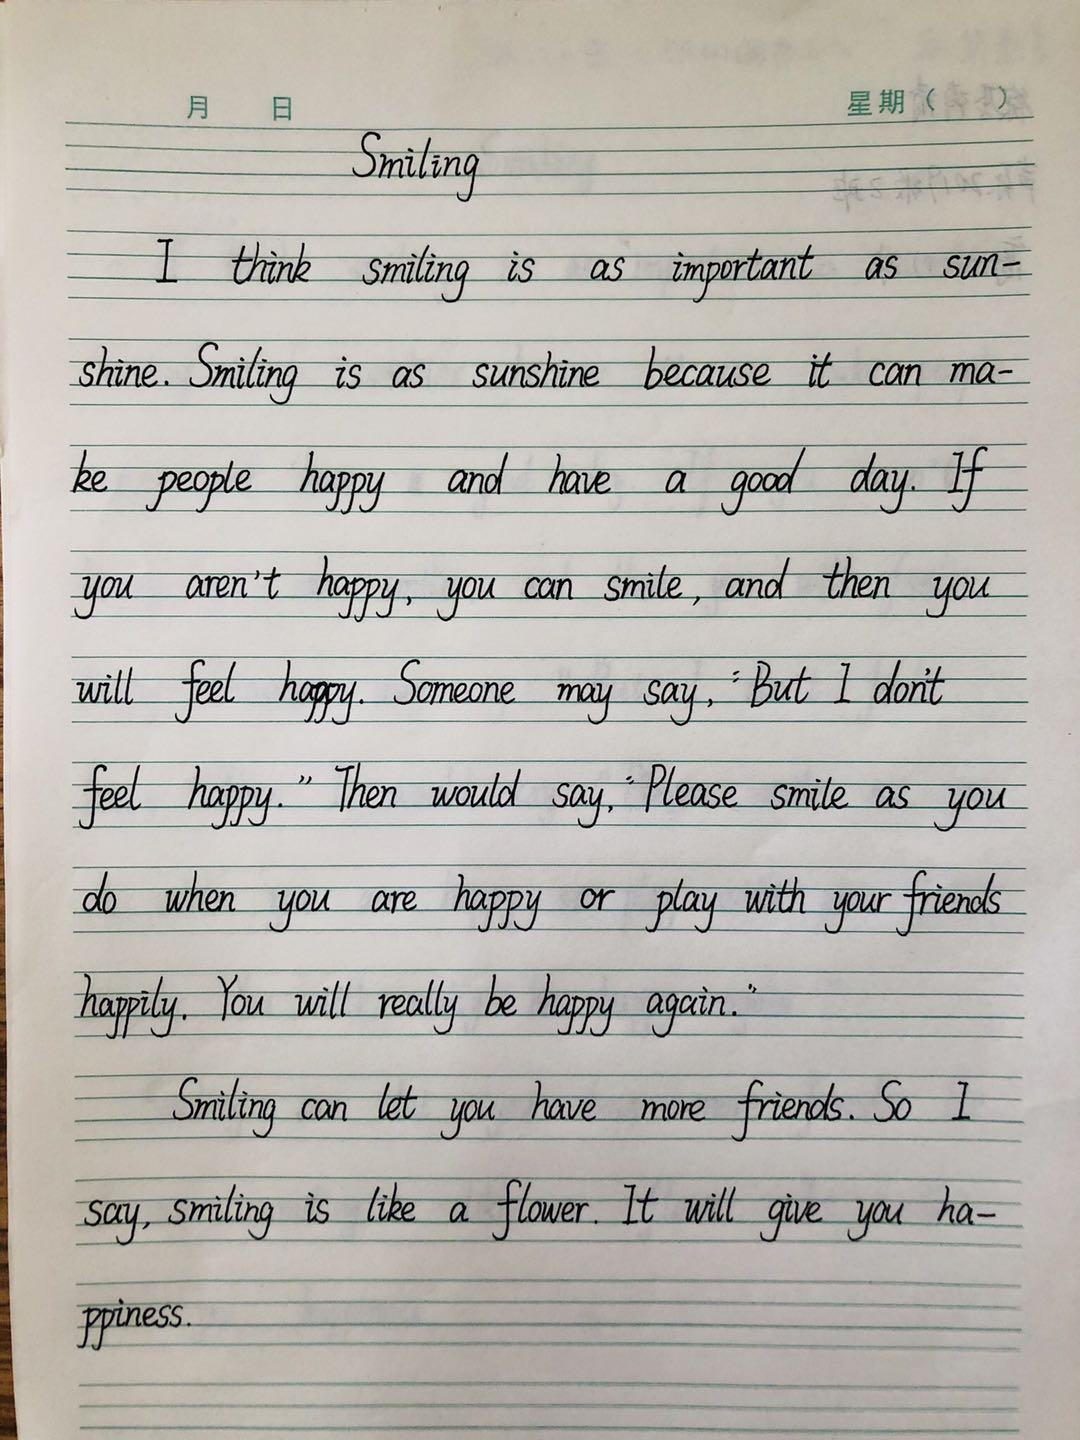 月 日 星期( )
Smiling
I think smiling is as important as sun-
shine. Smiling is as sunshine because it can ma-
ke people happy and have a good day. If
you aren't happy, you can smile, and then you
will feel happy. Someone may say, "But I don't
feel happy." Then would say, "Please smile as you
do when you are happy or play with your friends
happily. You will really be happy again."
Smiling can let you have more friends. So I
say, smiling is like a flower. It will give you ha-
ppiness.